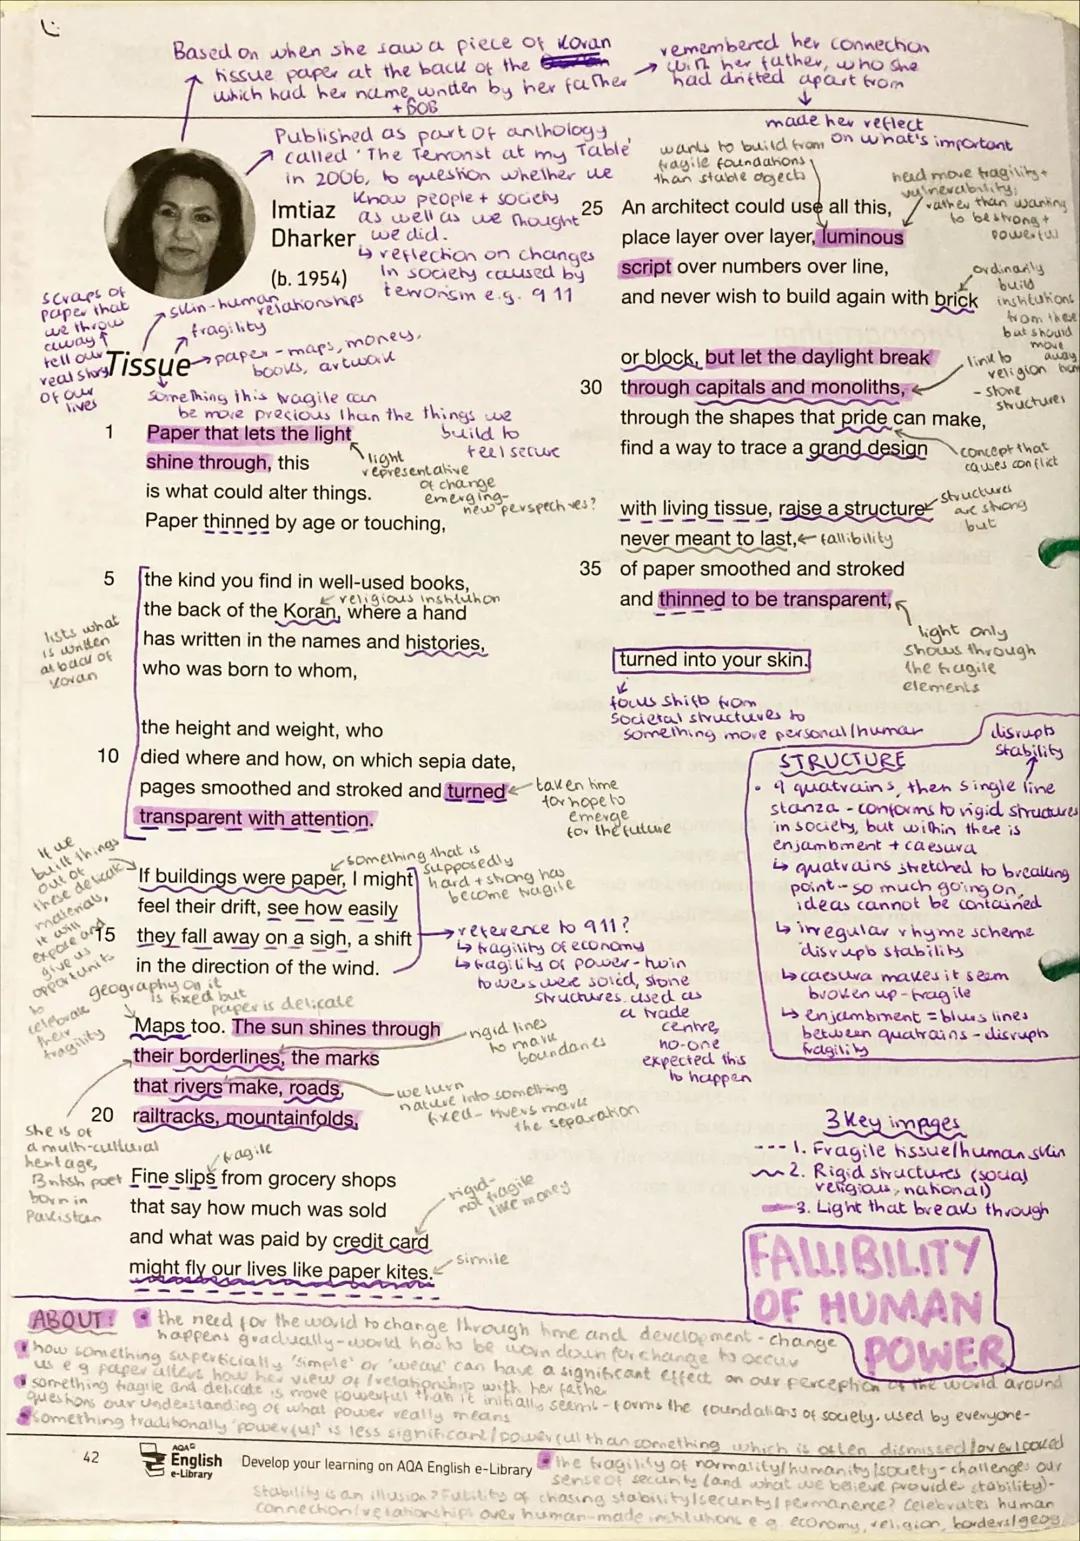 Based on when she saw a piece of Koran
tissue paper at the back of the
which had her name written by her father
+ DOB
remembered her connection
with her father, who she
had drifted apart from
made her reflect
on what's important
Published as part of anthology
called 'The Terrorist at my Table'
in 2006, to question whether we
know people + society
as well as we thought
we did.
↳ reflection on changes
in society caused by
terrorism e.g. 9 11
Imtiaz
Dharker
(b. 1954)
scraps of
paper that
we throw
away
tell our
real story
of our
lives
skin-human
relationships
fragility
Tissue
paper - maps, money,
books, artwork
something this fragile can
be more precious than the things we
build to
feel secure
1 Paper that lets the light
shine through, this
is what could alter things.
Paper thinned by age or touching,
light
representative
of change
emerging-
new perspectives?
5 the kind you find in well-used books,
religious institution
the back of the Koran, where a hand
has written in the names and histories,
who was born to whom,
lists what
is written
at back of
Koran
the height and weight, who
10 died where and how, on which sepia date,
pages smoothed and stroked and turned
transparent with attention.
taken time
for hope to
emerge
for the future
If we
built things
out of
these delicate
materials,
it will
expose and
give us
opportunity
to
celebrate
their
fragility
something that is
supposedly
hard + strong has
become fragile
If buildings were paper, I might
feel their drift, see how easily
15 they fall away on a sigh, a shift
in the direction of the wind.
reference to 911?
↳ fragility of economy
↳ fragility of power - twin
towers were solid, stone
structures used as
a trade
centre,
no-one
expected this
to happen
geography on it
is fixed but
paper is delicate
Maps too. The sun shines through
their borderlines, the marks
that rivers make, roads,
20 railtracks, mountainfolds,
rigid lines
to mark
boundaries
we turn
nature into something
fixed - rivers mark
the separation
She is of
a multi-cultural
heritage,
British poet
born in
Pakistan
fragile
Fine slips from grocery shops
that say how much was sold
and what was paid by credit card
might fly our lives like paper kites.
rigid-
not fragile
like money
simile
wants to build from
fragile foundations
than stable objects
need more fragility +
vulnerability;
rather than wanting
to be strong +
powerful
25 An architect could use all this,
place layer over layer, luminous
script over numbers over line,
and never wish to build again with brick
ordinarily
build
institutions
from these
but should
move
away
or block, but let the daylight break
30 through capitals and monoliths,
through the shapes that pride can make,
find a way to trace a grand design
link to
religion
- stone
structures
concept that
causes conflict
with living tissue, raise a structure
never meant to last,
35 of paper smoothed and stroked
and thinned to be transparent,
structures
are strong
but
fallibility
light only
shows through
the fragile
elements
turned into your skin.
focus shifts from
societal structures to
something more personal/human
disrupts
stability
STRUCTURE
• 9 quatrains, then single line
stanza - conforms to rigid structures
in society, but within there is
enjambment + caesura
↳ quatrains stretched to breaking
point - so much going on,
ideas cannot be contained
↳ irregular rhyme scheme
disrupts stability
↳ caesura makes it seem
broken up - fragile
↳ enjambment = blurs lines
between quatrains - disrupts
fragility
3 Key images
--- 1. Fragile tissue/human skin
2. Rigid structures (social
religious, national)
3. Light that breaks through
FALLIBILITY
OF HUMAN
POWER
ABOUT: • the need for the world to change through time and development - change
happens gradually - world has to be worn down for change to occur
• how something superficially 'simple' or 'weak' can have a significant effect on our perception of the world around
us e g paper alters how her view of/relationship with her father
• something fragile and delicate is more powerful than it initially seems - forms the foundations of society, used by everyone-
questions our understanding of what power really means
• something traditionally 'powerful' is less significant/powerful than something which is often dismissed/overlooked
• the fragility of normality/humanity/society - challenges our
sense of security (and what we believe provides stability) -
stability is an illusion? Futility of chasing stability/security/permanence? Celebrates human
connection/relationships over human-made institutions e g economy, religion, borders/geog
42 AQA English e-Library Develop your learning on AQA English e-Library